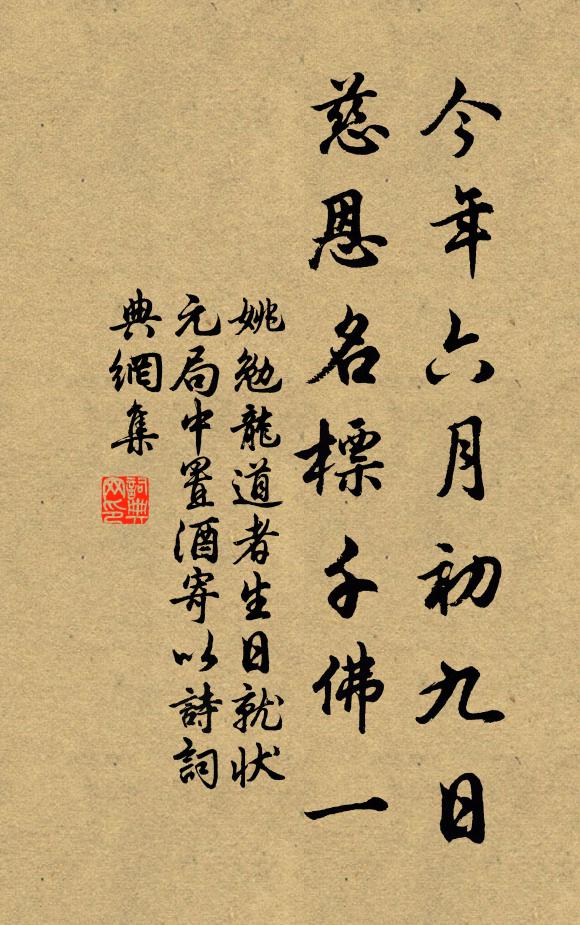 今年六月初九日
慈恩名標千佛一
姚勉龍道者生日就状
元局中置酒寄以詩詞
典網集
詞典網印